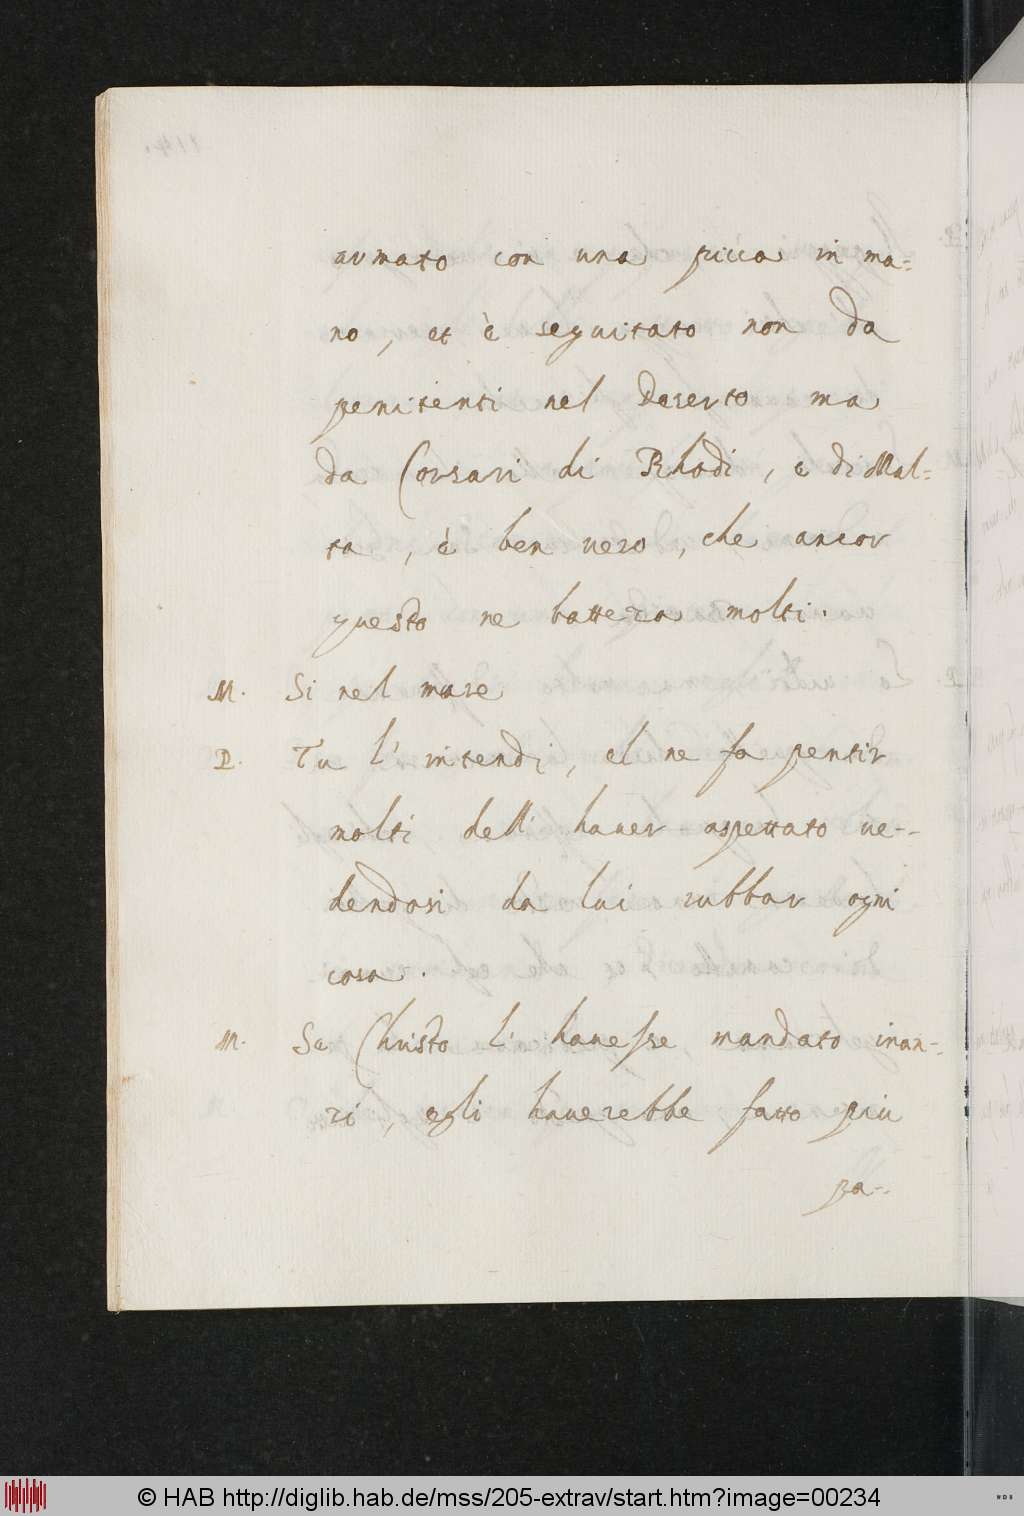 armato con una picca in ma-
no, et è seguitato non da
penitenti nel Deserto ma
da Corsari di Rhodi, e di Mal-
ta, è ben uero, che ancor
questo ne battezza molti.
M. Si nel mare
P. Tu l'intendi, el ne fa pentir
molti dell'hauer aspettato ue-
dendosi da lui rubbar ogni
cosa.
M. Se Christo li hauesse mandato inan-
zi, egli hauerebbe fatto piu
pa-
© HAB http://diglib.hab.de/mss/205-extrav/start.htm?image=00234